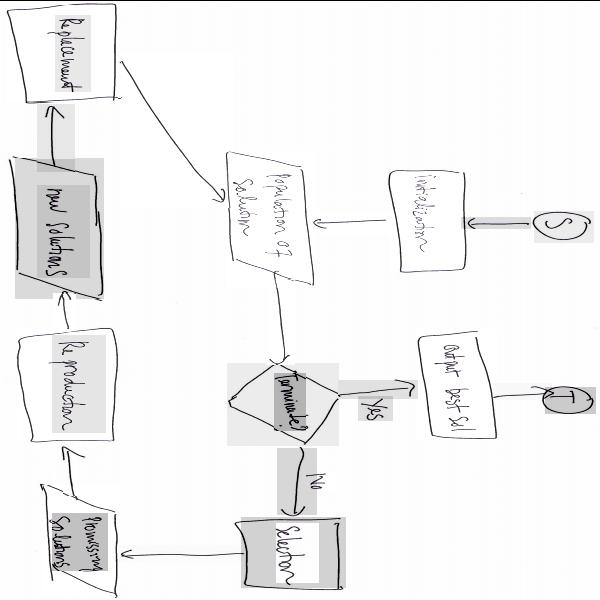 S
initialization
Population of
Solution
Terminate?
Yes
output best sol
T
No
Selection
Promissing
Solutions
Reproduction
new solutions
Replacement